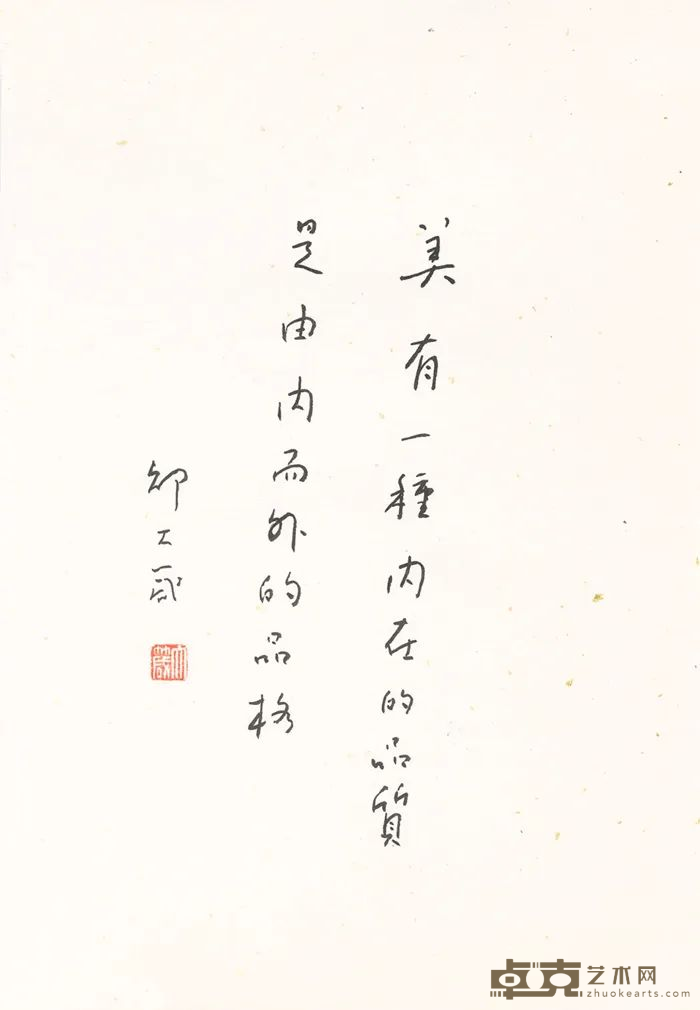 美有一種内在的品質
是由内而外的品格
邰工
卓克艺术网
zhuokearts.com